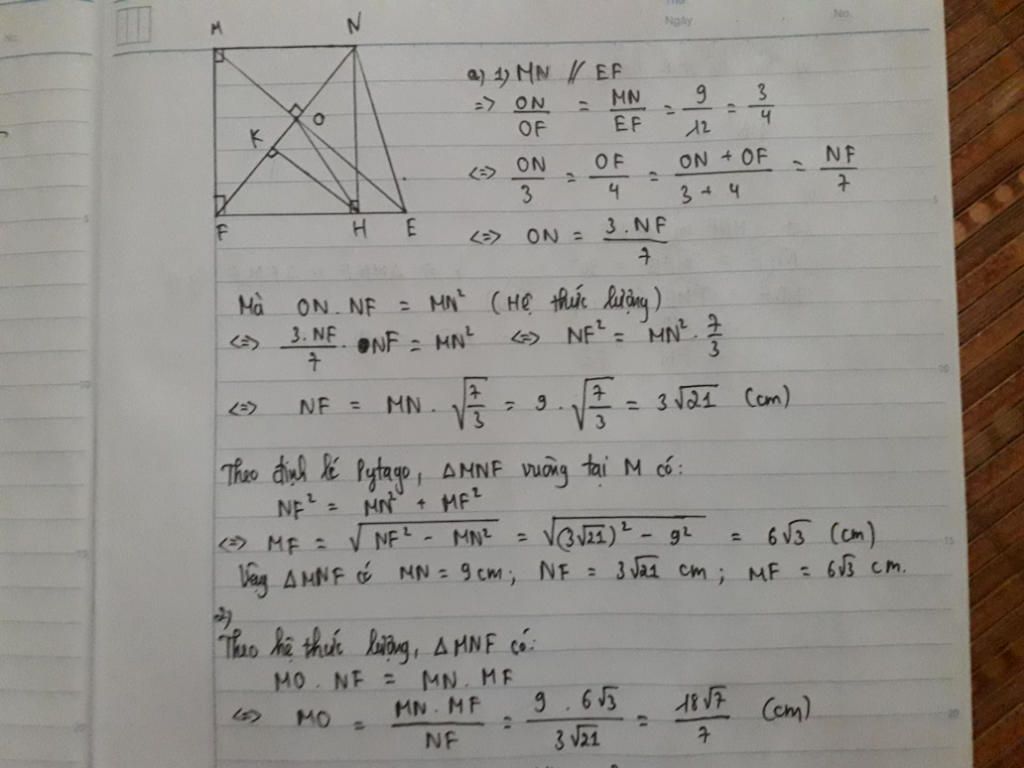 Thứ
Ngày
No.
No.
M N
O
K
F H E
a) 1) MN // EF
=> ON/OF = MN/EF = 9/12 = 3/4
<=> ON/3 = OF/4 = (ON + OF)/(3 + 4) = NF/7
<=> ON = 3.NF/7
Mà ON. NF = MN² (Hệ thức lượng)
<=> 3.NF/7 . NF = MN² <=> NF² = MN² . 7/3
<=> NF = MN . √(7/3) = 9 . √(7/3) = 3√21 (cm)
Theo định lí Pytago, ΔMNF vuông tại M có:
NF² = MN² + MF²
<=> MF = √(NF² - MN²) = √((3√21)² - 9²) = 6√3 (cm)
Vậy ΔMNF có MN = 9 cm; NF = 3√21 cm; MF = 6√3 cm.
2)
Theo hệ thức lượng, ΔMNF có:
MO . NF = MN . MF
<=> MO = MN.MF/NF = 9 . 6√3/3√21 = 18√7/7 (cm)